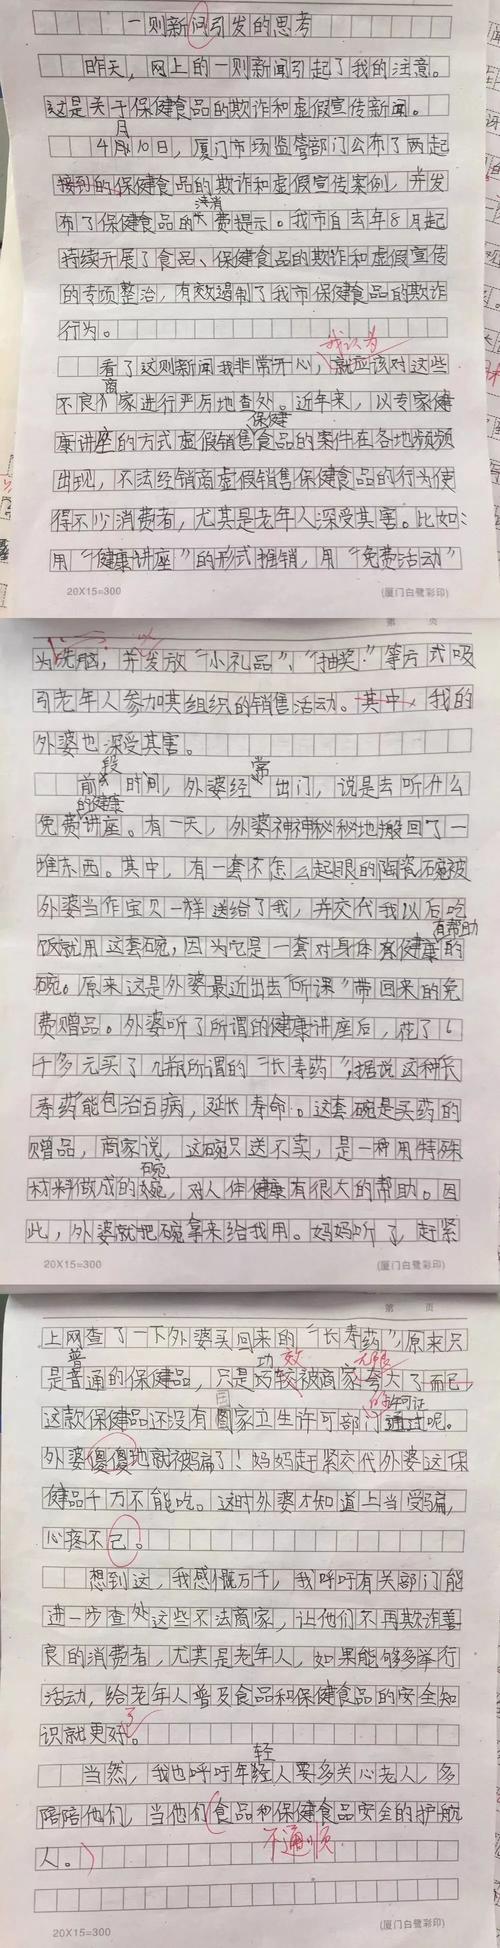 一则新问引发的思考
昨天，网上的一则新闻引起了我的注意。
这是关于保健食品的欺诈和虚假宣传新闻。
月
4月10日，厦门市场监管部门公布了两起
接到的保健食品的欺诈和虚假宣传案例，并发
消
布了保健食品的费提示。我市自去年8月起
持续开展了食品、保健食品的欺诈和虚假宣传
的专项整治，有效遏制了我市保健食品的欺诈
行为。
我认为
看了这则新闻我非常开心，就应该对这些
商
不良家进行严厉地查处。近年来，以专家健
保健
康讲座的方式虚假销售食品的案件在各地频频
出现，不法经销商虚假销售保健食品的行为使
得不少消费者，尤其是老年人深受其害。比如：
用“健康讲座”的形式推销，用“免费活动”
20X15=300 (厦门白鹭彩印)
第 页
以
为洗脑，并发放“小礼品”、“抽奖”等方式吸
引老年人参加其组织的销售活动。其中，我的
外婆也深受其害。
段 常
前时间，外婆经出门，说是去听什么
的健康
免费讲座。有一天，外婆神神秘秘地搬回了一
堆东西。其中，有一套不怎么起眼的陶瓷碗被
外婆当作宝贝一样送给了我，并交代我以后吃
有帮助
饭就用这套碗，因为它是一套对身体健康的
碗。原来这是外婆最近出去“听课”带回来的免
费赠品。外婆听了所谓的健康讲座后，花了6
千多元买了几瓶所谓的“长寿药”，据说这种长
寿药能包治百病，延长寿命。这套碗是买药的
赠品，商家说，这碗只送不卖，是一种用特殊
碗
材料做成的，对人体健康有很大的帮助。因
此，外婆就把碗拿来给我用。妈妈听了，赶紧
20X15=300 (厦门白鹭彩印)
第 页
上网查了一下外婆买回来的“长寿药”，原来只
普 功 效 无限
是普通的保健品，只是较被商家夸大了而已，
国 的许可证
这款保健品还没有国家卫生许可部门通过呢。
外婆傻傻地就被骗了！妈妈赶紧交代外婆这保
健品千万不能吃。这时外婆才知道上当受骗，
心疼不己。
想到这，我感慨万千，我呼吁有关部门能
进一步查处这些不法商家，让他们不再欺诈善
良的消费者，尤其是老年人，如果能够多举行
活动，给老年人普及食品和保健食品的安全知
了
识就更好。
轻
当然，我也呼吁年人要多关心老人，多
陪陪他们，当他们食品和保健食品安全的护航
人。
不通顺
20X15=300 (厦门白鹭彩印)